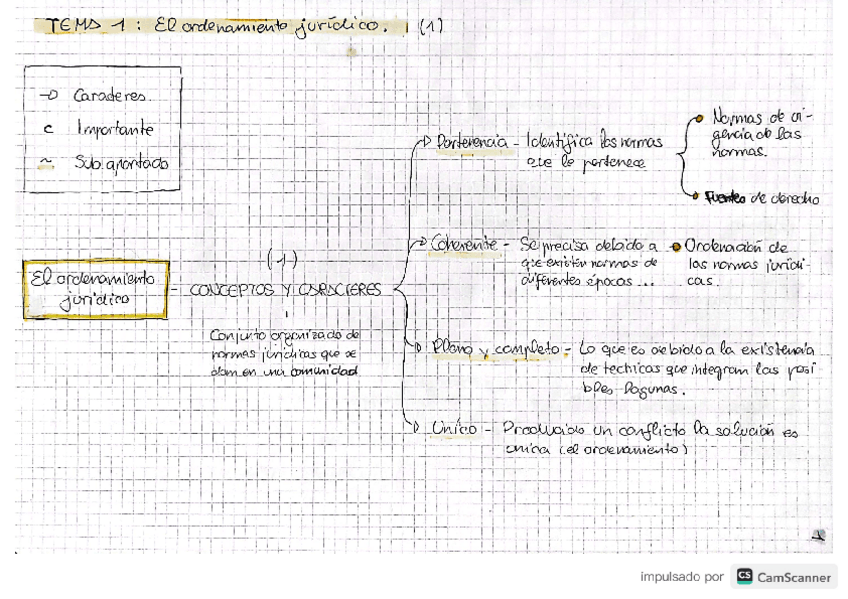 TEMA 1: El ordenamiento jurídico. (1)
→ Caracteres.
c Importante
~ Subapartado
El ordenamiento
jurídico
(1)
- CONCEPTOS Y CARACTERES
Conjunto organizado de
normas jurídicas que se
dan en una comunidad
Pertenencia - Identifica las normas
que le pertenece
Normas de vi-
gencia de las
normas.
Fuentes de derecho
Coherente - Se precisa debido a
que existen normas de
diferentes épocas...
Ordenación de
las normas jurídi-
cas.
Pleno y completo - Lo que es debido a la existencia
de technicas que integran las posi
bles lagunas.
Único - Producido un conflicto la solución es
única (el ordenamiento)
1
impulsado por CS CamScanner